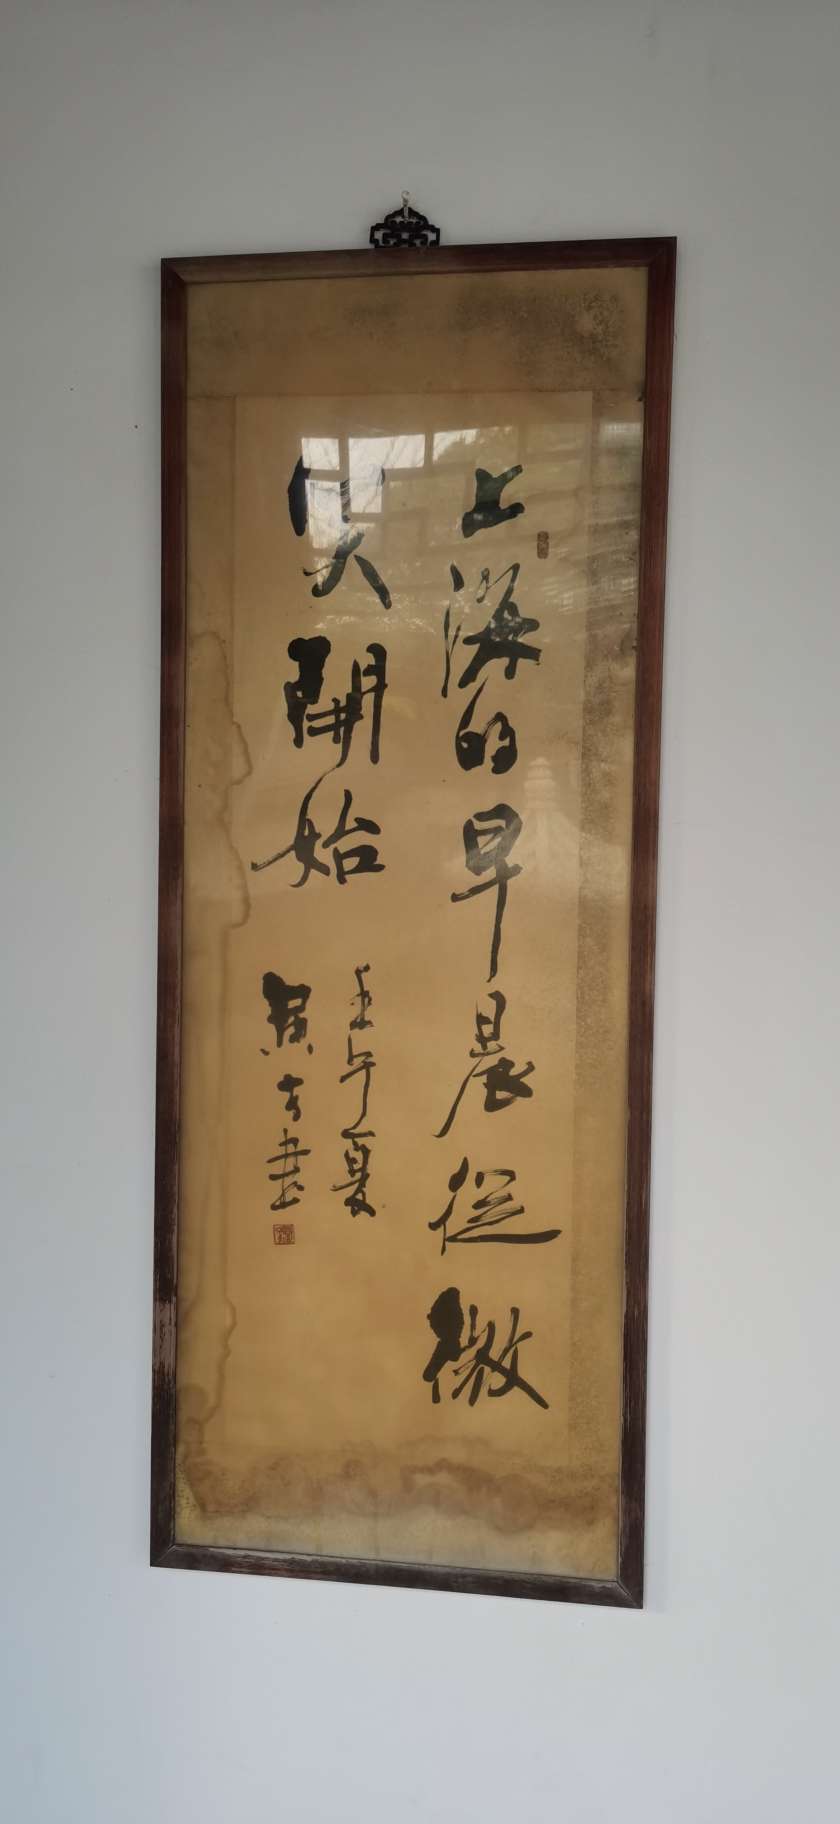 上海的早晨從微
笑開始
壬午夏
書